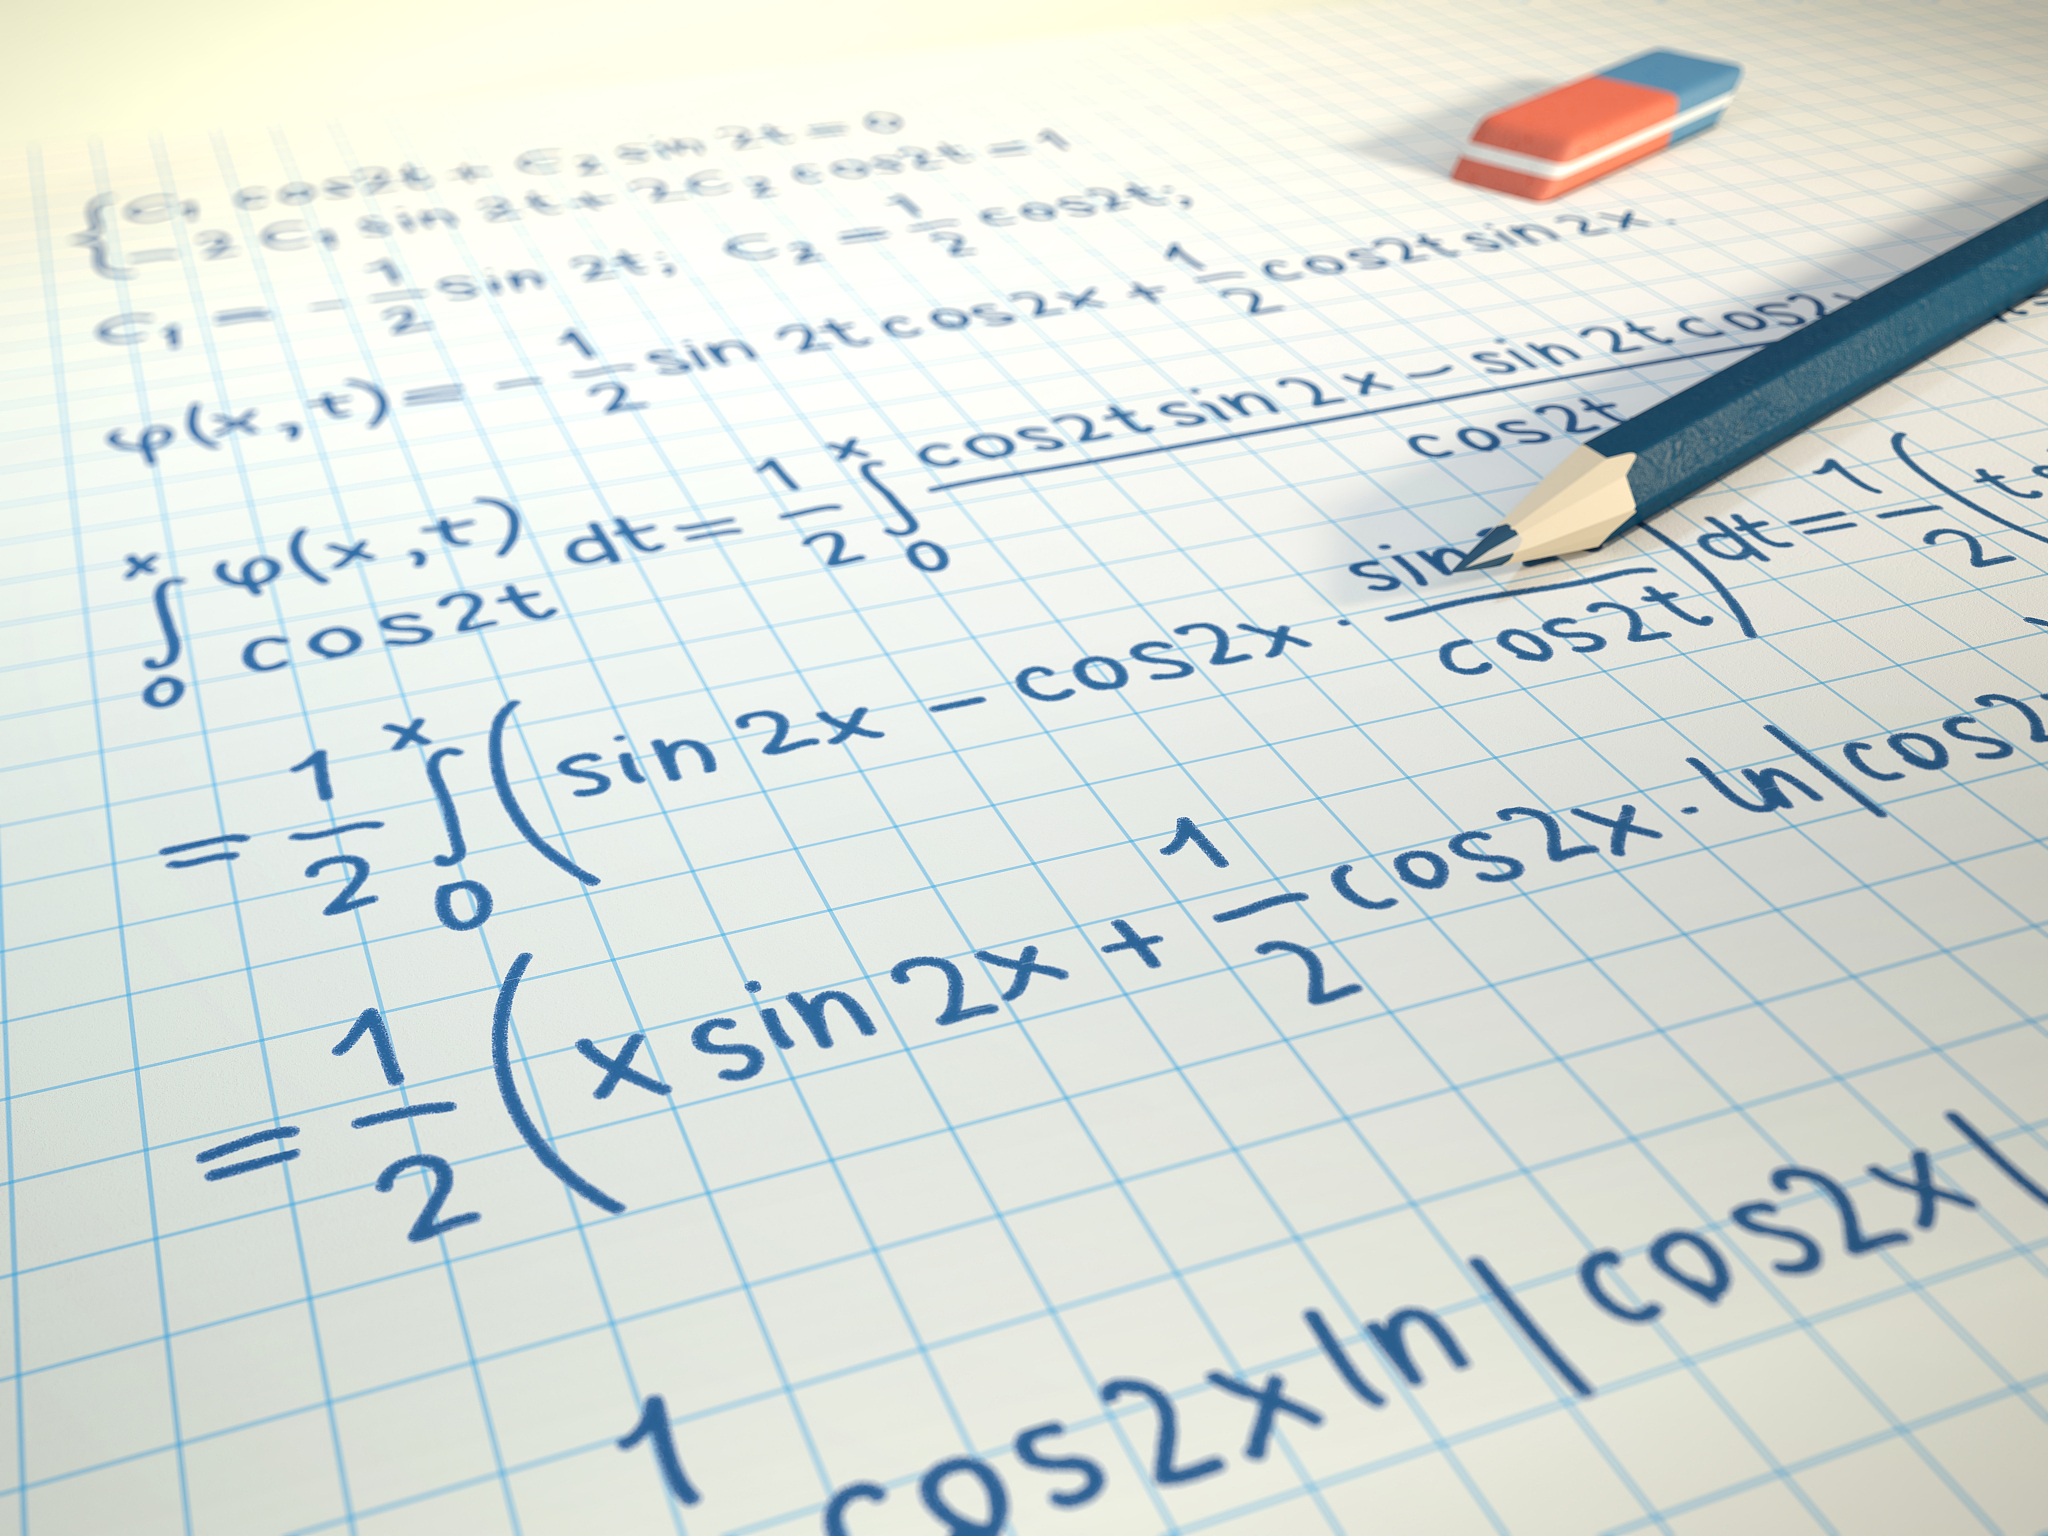 {C₁ cos2t + C₂ sin 2t = 0
-2C₁ sin 2t + 2C₂ cos2t = 1
C₁ = -1/2 sin 2t; C₂ = 1/2 cos2t;
φ(x,t) = -1/2 sin 2t cos2x + 1/2 cos2t sin 2x.
∫₀ˣ φ(x,t)/cos2t dt = 1/2 ∫₀ˣ (cos2t sin 2x - sin 2t cos2)/cos2t
= 1/2 ∫₀ˣ (sin 2x - cos2x · sin/cos2t) dt = 1/2 (t
= 1/2 (x sin 2x + 1/2 cos2x · ln|cos2
1 cos2x ln|cos2x|